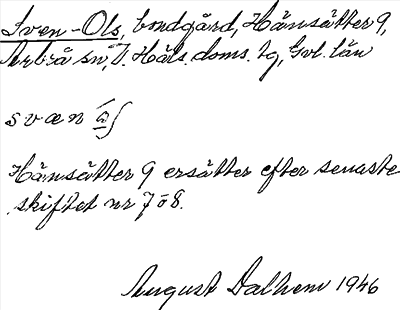 Sven-Ols, bondgård, Hånsätter 9,
Arbrå sn, V. Häls. doms. tg, Gvl. län
svæn
Hånsätter 9 ersätter efter senaste
skiftet nr 7 o 8.
August Dalhem 1946